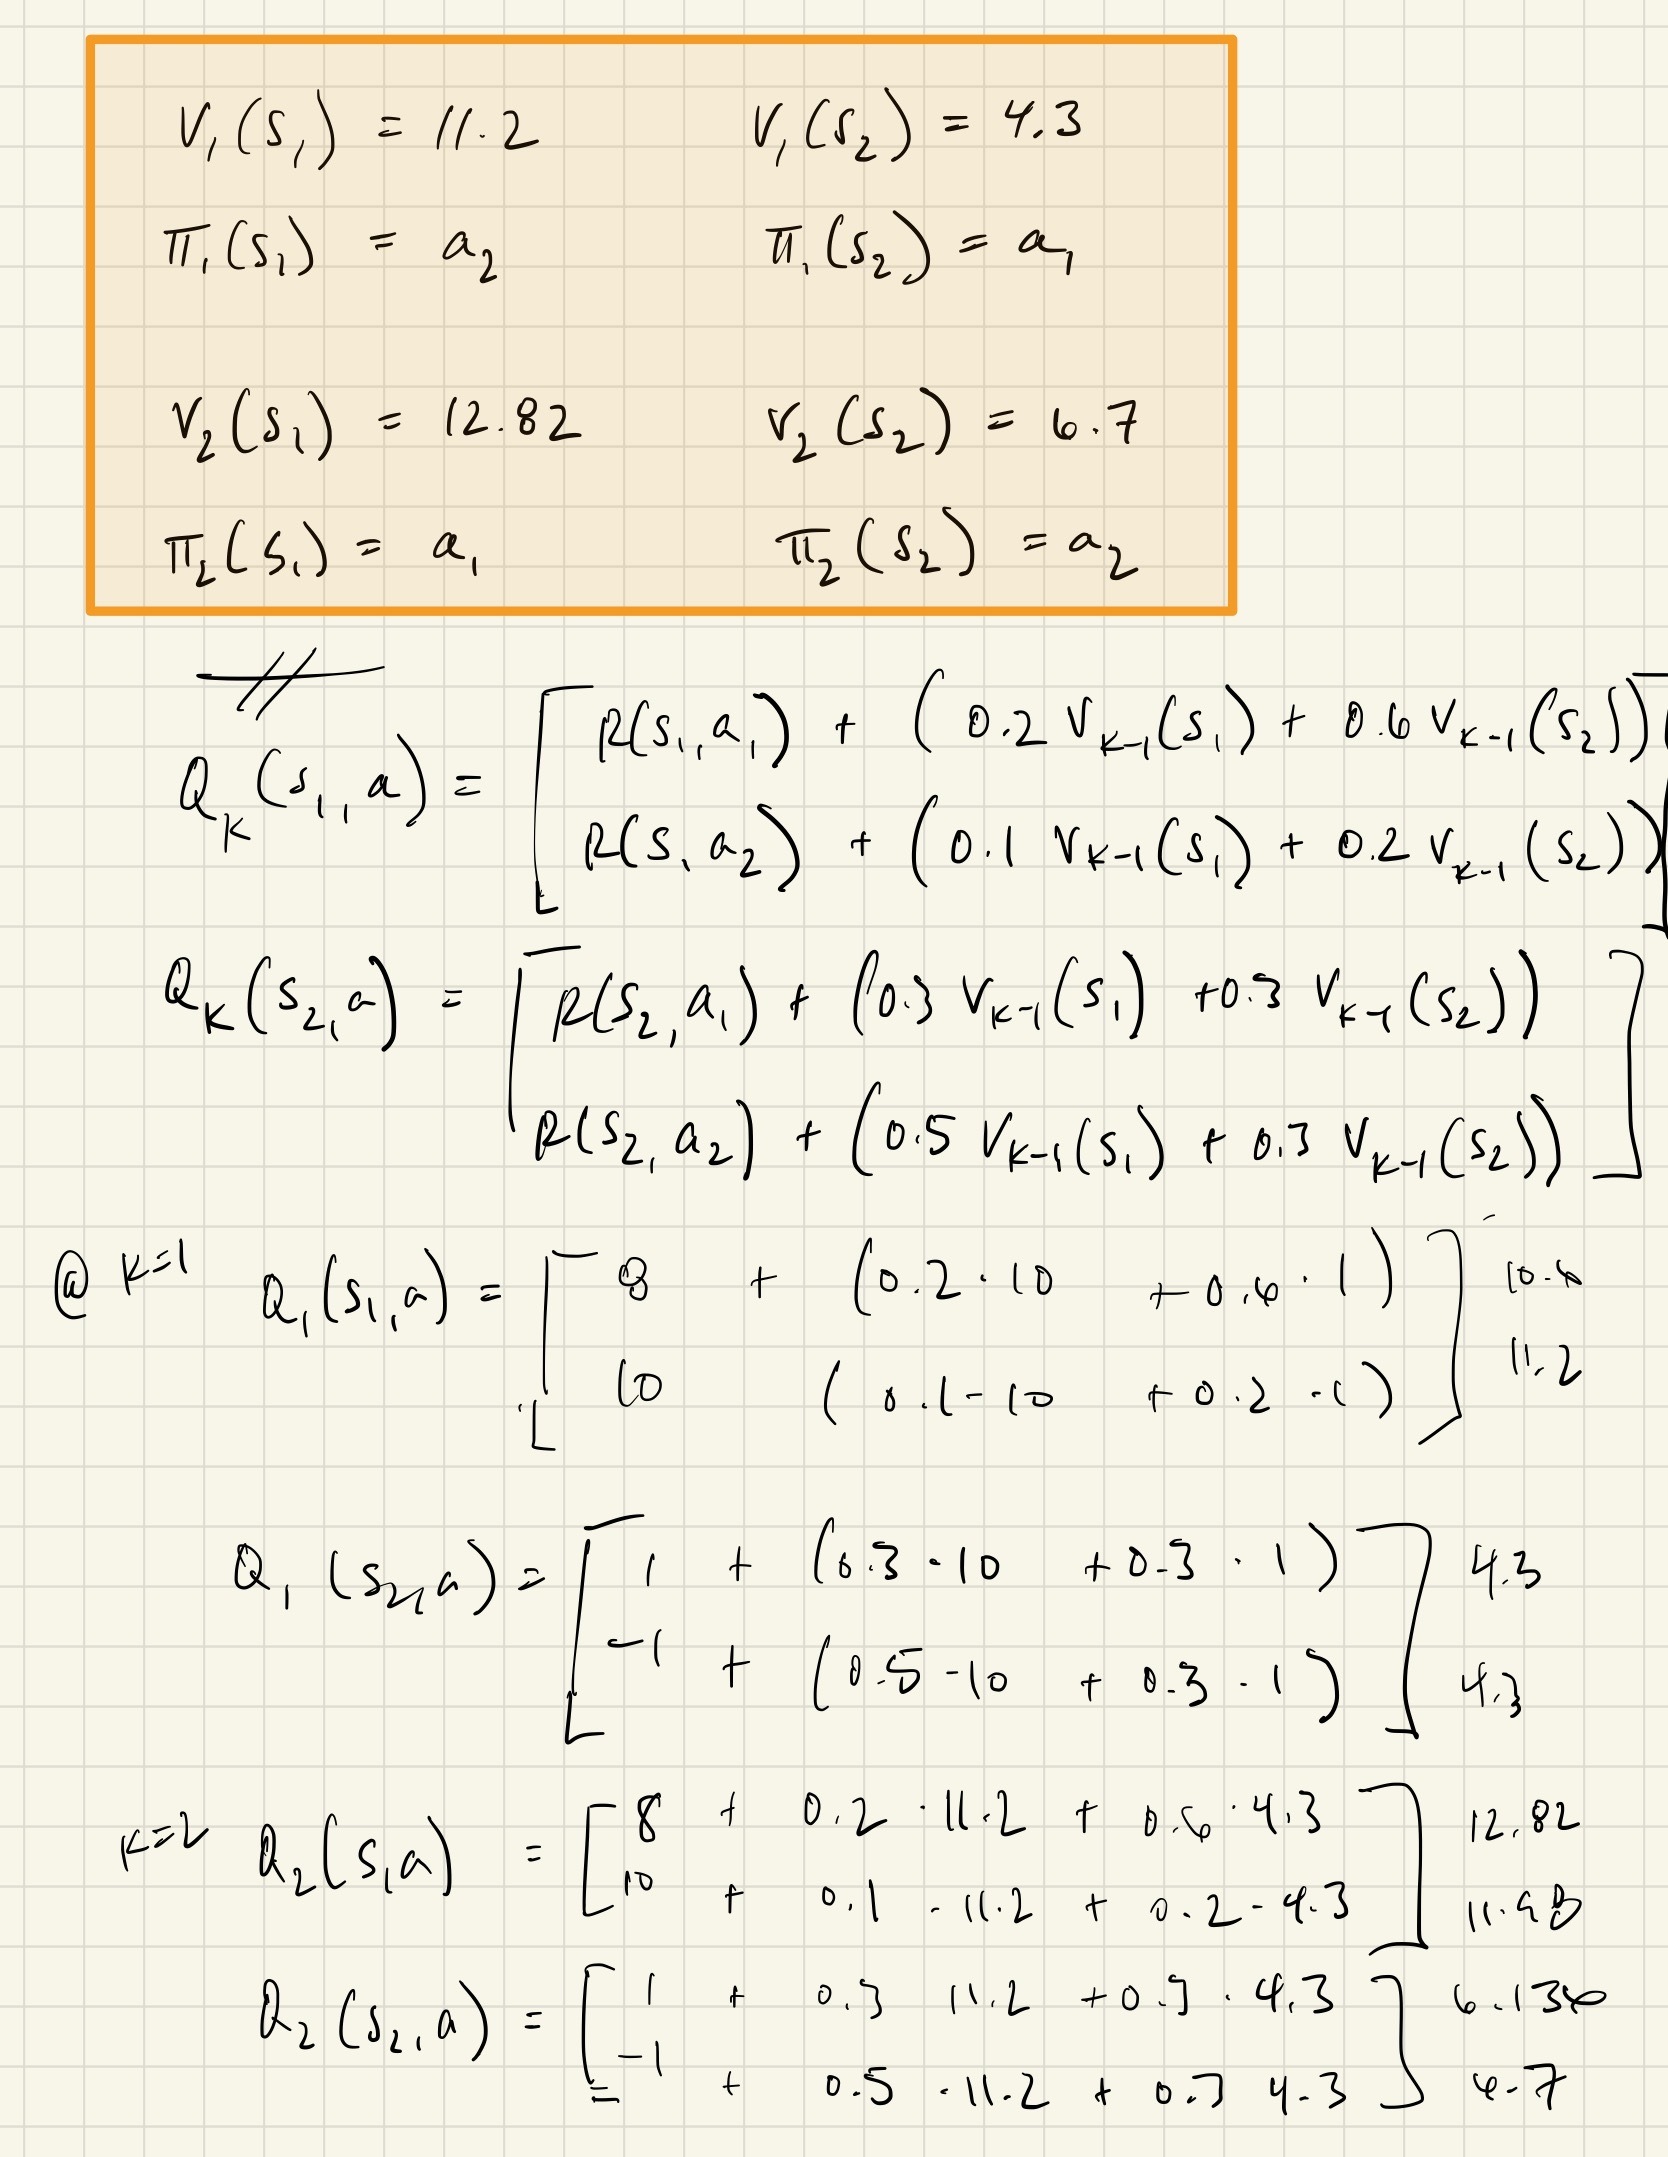 V₁(s₁) = 11.2 V₁(s₂) = 4.3
π₁(s₁) = a₂ π₁(s₂) = a₁
V₂(s₁) = 12.82 V₂(s₂) = 6.7
π₂(s₁) = a₁ π₂(s₂) = a₂
Qₖ(s₁, a) = [ R(s₁, a₁) + (0.2 Vₖ₋₁(s₁) + 0.6 Vₖ₋₁(s₂))
R(s, a₂) + (0.1 Vₖ₋₁(s₁) + 0.2 Vₖ₋₁(s₂)) ]
Qₖ(s₂, a) = [ R(s₂, a₁) + (0.3 Vₖ₋₁(s₁) + 0.3 Vₖ₋₁(s₂))
R(s₂, a₂) + (0.5 Vₖ₋₁(s₁) + 0.3 Vₖ₋₁(s₂)) ]
@ K=1 Q₁(s₁, a) = [ 8 + (0.2 · 10 + 0.6 · 1) ] 10.6
10 (0.1 - 10 + 0.2 · 1) 11.2
Q₁(s₂, a) = [ 1 + (0.3 · 10 + 0.3 · 1) ] 4.3
-1 + (0.5 - 10 + 0.3 · 1) 4.3
K=2 Q₂(s₁a) = [ 8 + 0.2 · 11.2 + 0.6 · 4.3 ] 12.82
10 + 0.1 · 11.2 + 0.2 - 4.3 11.98
Q₂(s₂, a) = [ 1 + 0.3 11.2 + 0.3 · 4.3 ]
-1 + 0.5 · 11.2 + 0.3 4.3 6.7